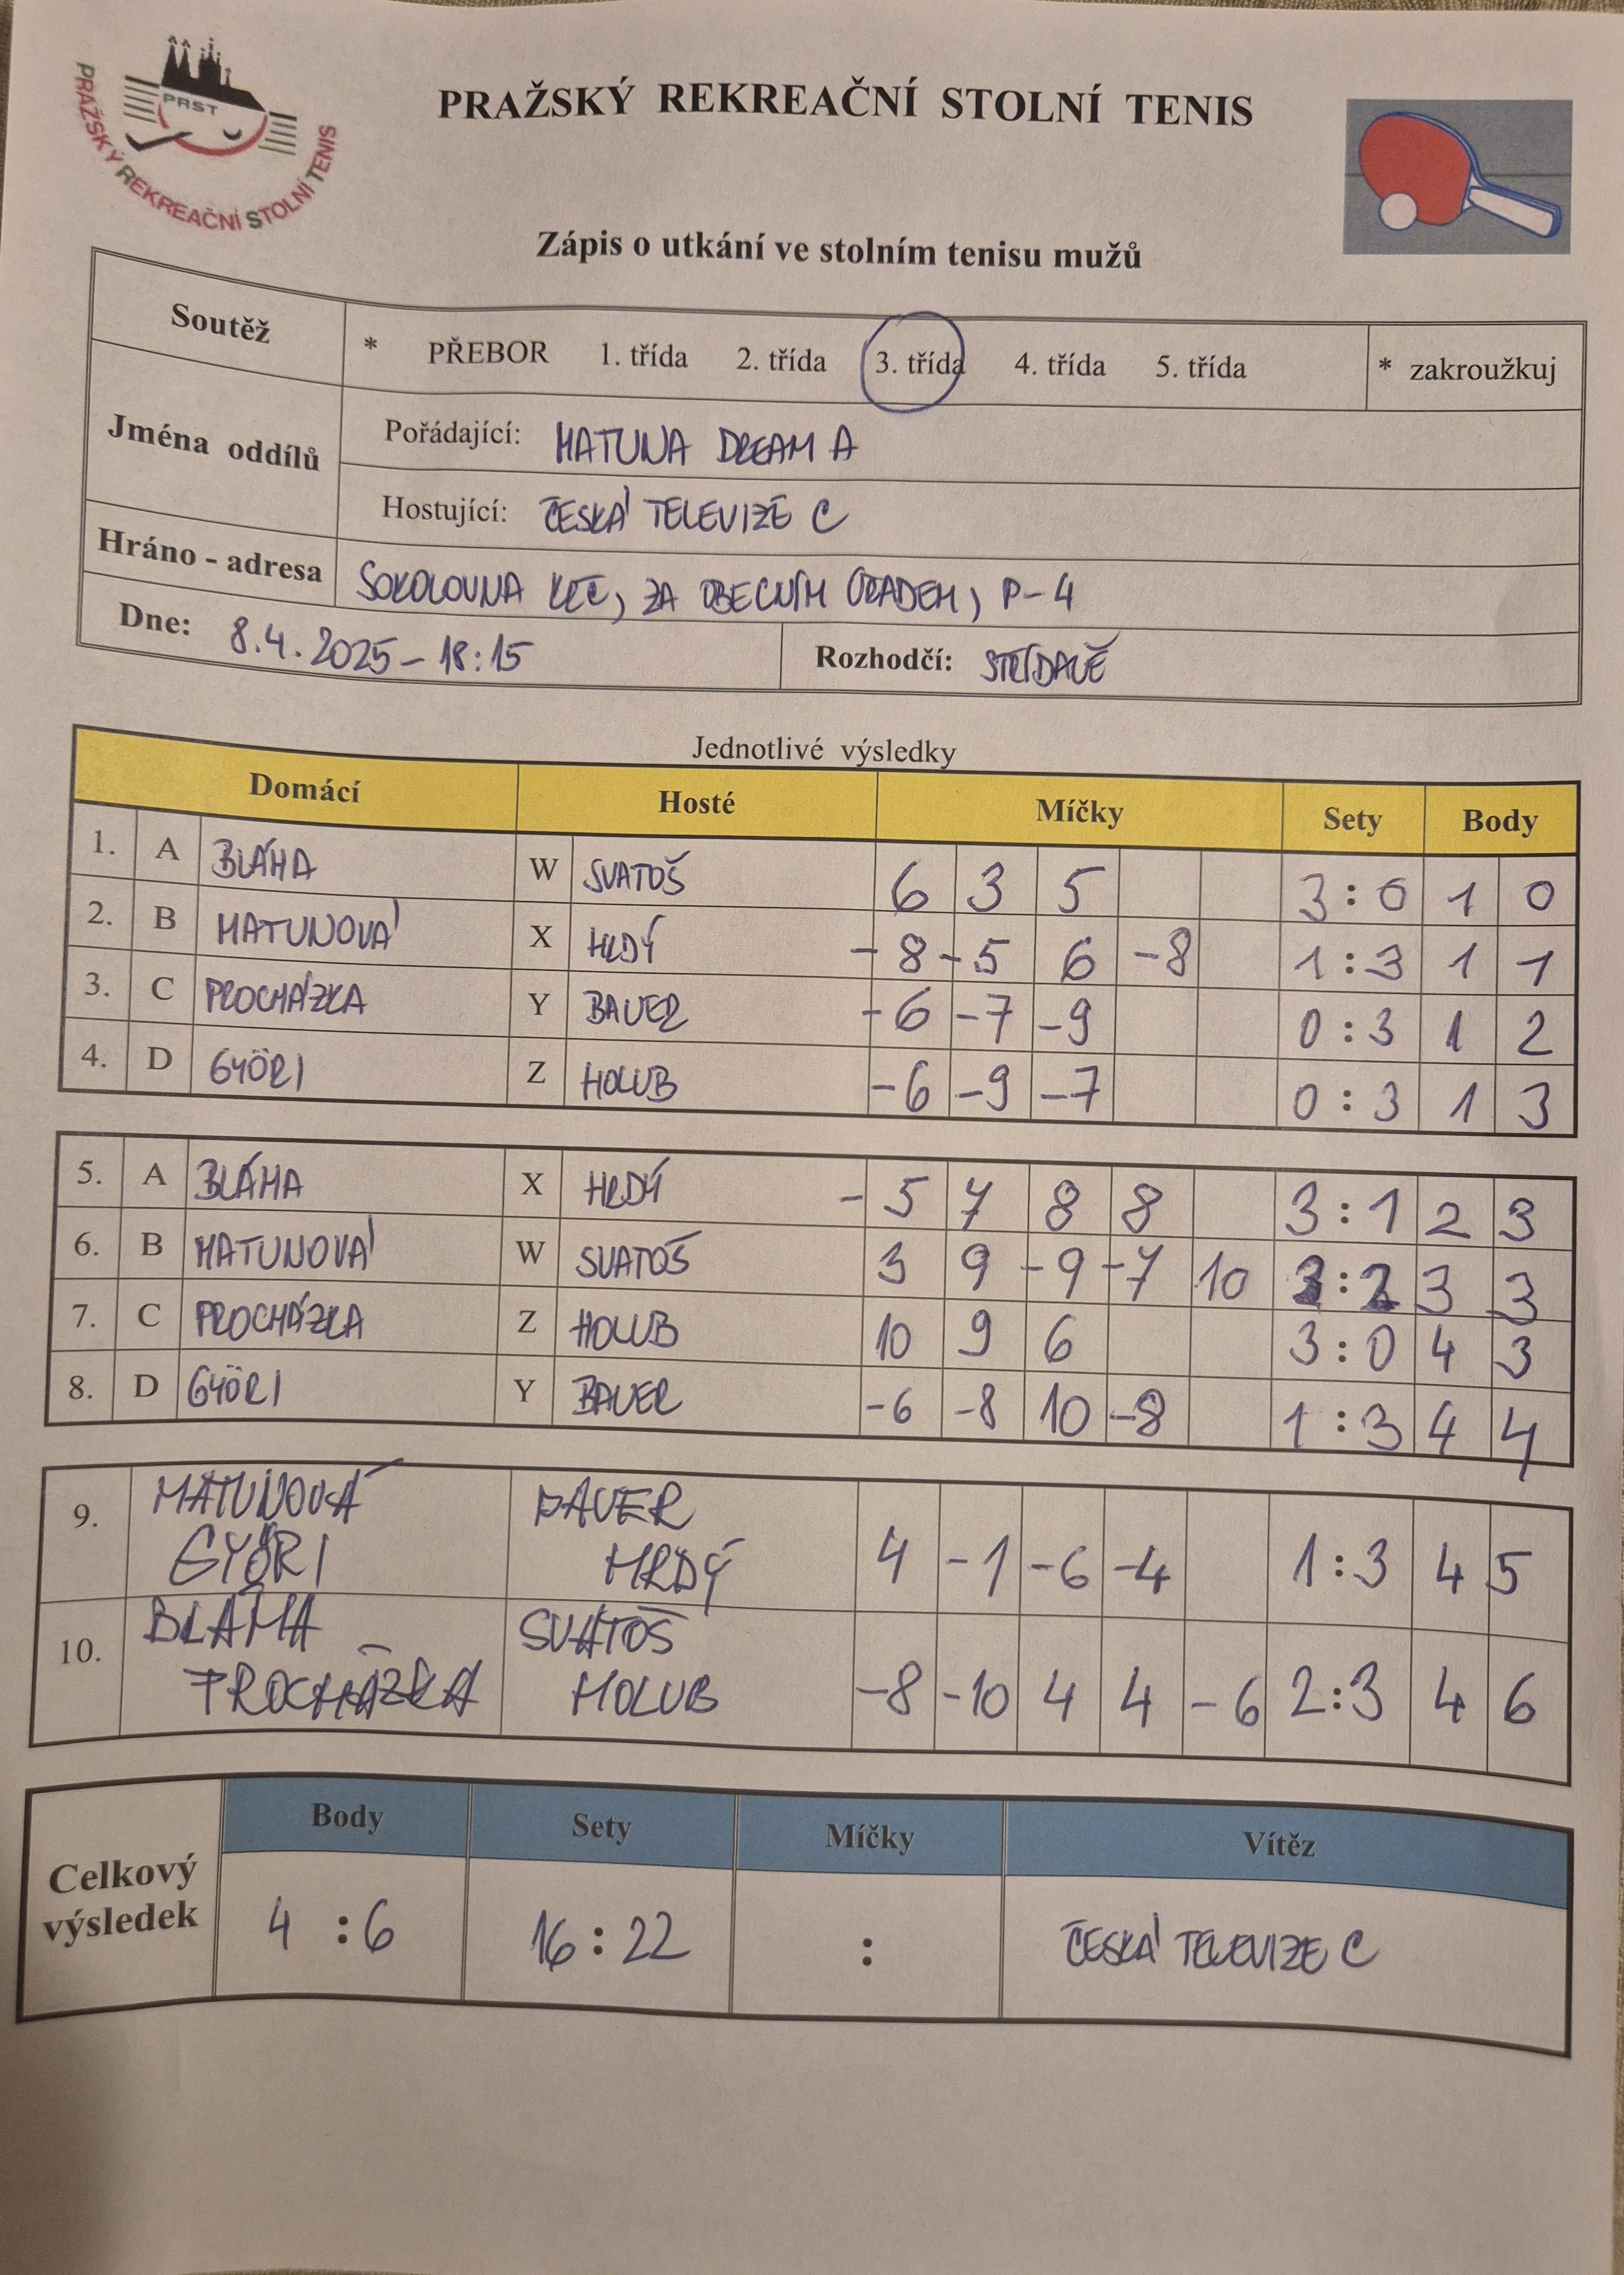 PRST
PRAŽSKÝ REKREAČNÍ STOLNÍ TENIS
PRAŽSKÝ REKREAČNÍ STOLNÍ TENIS
Zápis o utkání ve stolním tenisu mužů
Soutěž * PŘEBOR 1. třída 2. třída 3. třída 4. třída 5. třída * zakroužkuj
Jména oddílů Pořádající: MATUNA DREAM A
Hostující: ČESKÁ TELEVIZE C
Hráno - adresa SOKOLOVNA KRČ, ZA OBECNÍM ÚŘADEM, P-4
Dne: 8.4.2025 - 18:15 Rozhodčí: STŘÍDAVĚ
Jednotlivé výsledky
Domácí Hosté Míčky Sety Body
1. A BLÁHA W SVATOŠ 6 3 5 3 : 0 1 0
2. B MATUNOVÁ X HRDÝ -8 -5 6 -8 1 : 3 1 1
3. C PROCHÁZKA Y BAUER -6 -7 -9 0 : 3 1 2
4. D GYÖRI Z HOLUB -6 -9 -7 0 : 3 1 3
5. A BLÁHA X HRDÝ -5 7 8 8 3 : 1 2 3
6. B MATUNOVÁ W SVATOŠ 3 9 -9 -7 10 3 : 2 3 3
7. C PROCHÁZKA Z HOLUB 10 9 6 3 : 0 4 3
8. D GYÖRI Y BAUER -6 -8 10 -8 1 : 3 4 4
9. MATUNOVÁ BAUER
GYÖRI HRDÝ 4 -1 -6 -4 1 : 3 4 5
10. BLÁHA SVATOŠ
PROCHÁZKA HOLUB -8 -10 4 4 -6 2 : 3 4 6
Body Sety Míčky Vítěz
Celkový výsledek 4 : 6 16 : 22 : ČESKÁ TELEVIZE C